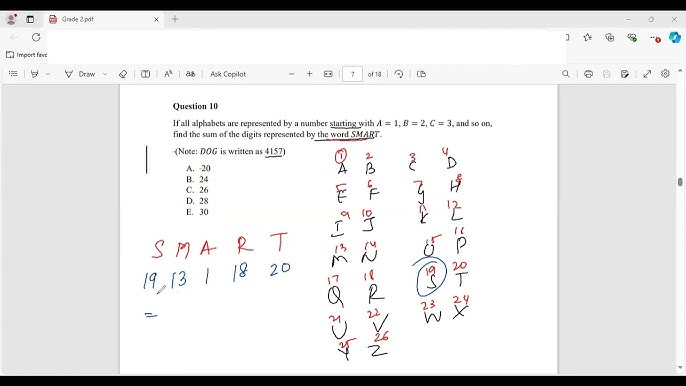 Grade 2.pdf
Import favo
Draw
Ask Copilot
7 of 18
Question 10
If all alphabets are represented by a number starting with A = 1, B = 2, C = 3, and so on,
find the sum of the digits represented by the word SMART.
(Note: DOG is written as 4157)
A. 20
B. 24
C. 26
D. 28
E. 30
S M A R T
19 13 1 18 20
=
1 2 3 4
A B C D
5 6 7 8
E F G H
9 10 11 12
I J K L
13 14 15 16
M N O P
17 18 19 20
Q R S T
21 22 23 24
U V W X
25 26
Y Z